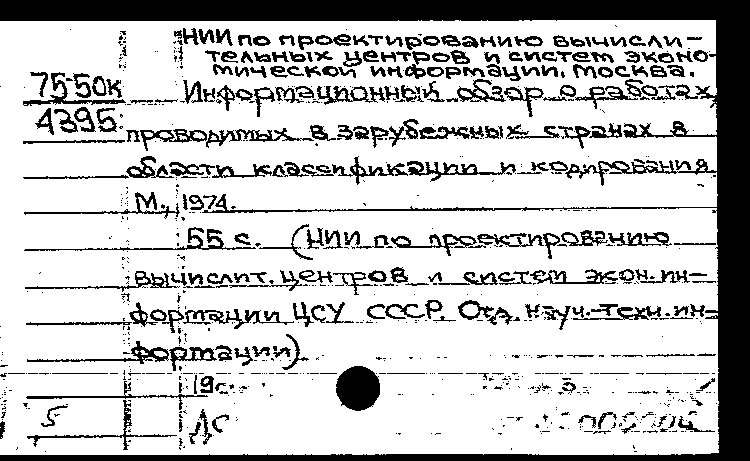 НИИ по проектированию вычисли-
тельных центров и систем эконо-
мической информации. Москва.
75-50к
4395
Информационный обзор о работах,
проводимых в зарубежных странах в
области классификации и кодирования
М., 1974.
55 с. (НИИ по проектированию
вычислит. центров и систем экон. ин-
формации ЦСУ СССР. Отд. науч.-техн. ин-
формации).
19с
5
ДС